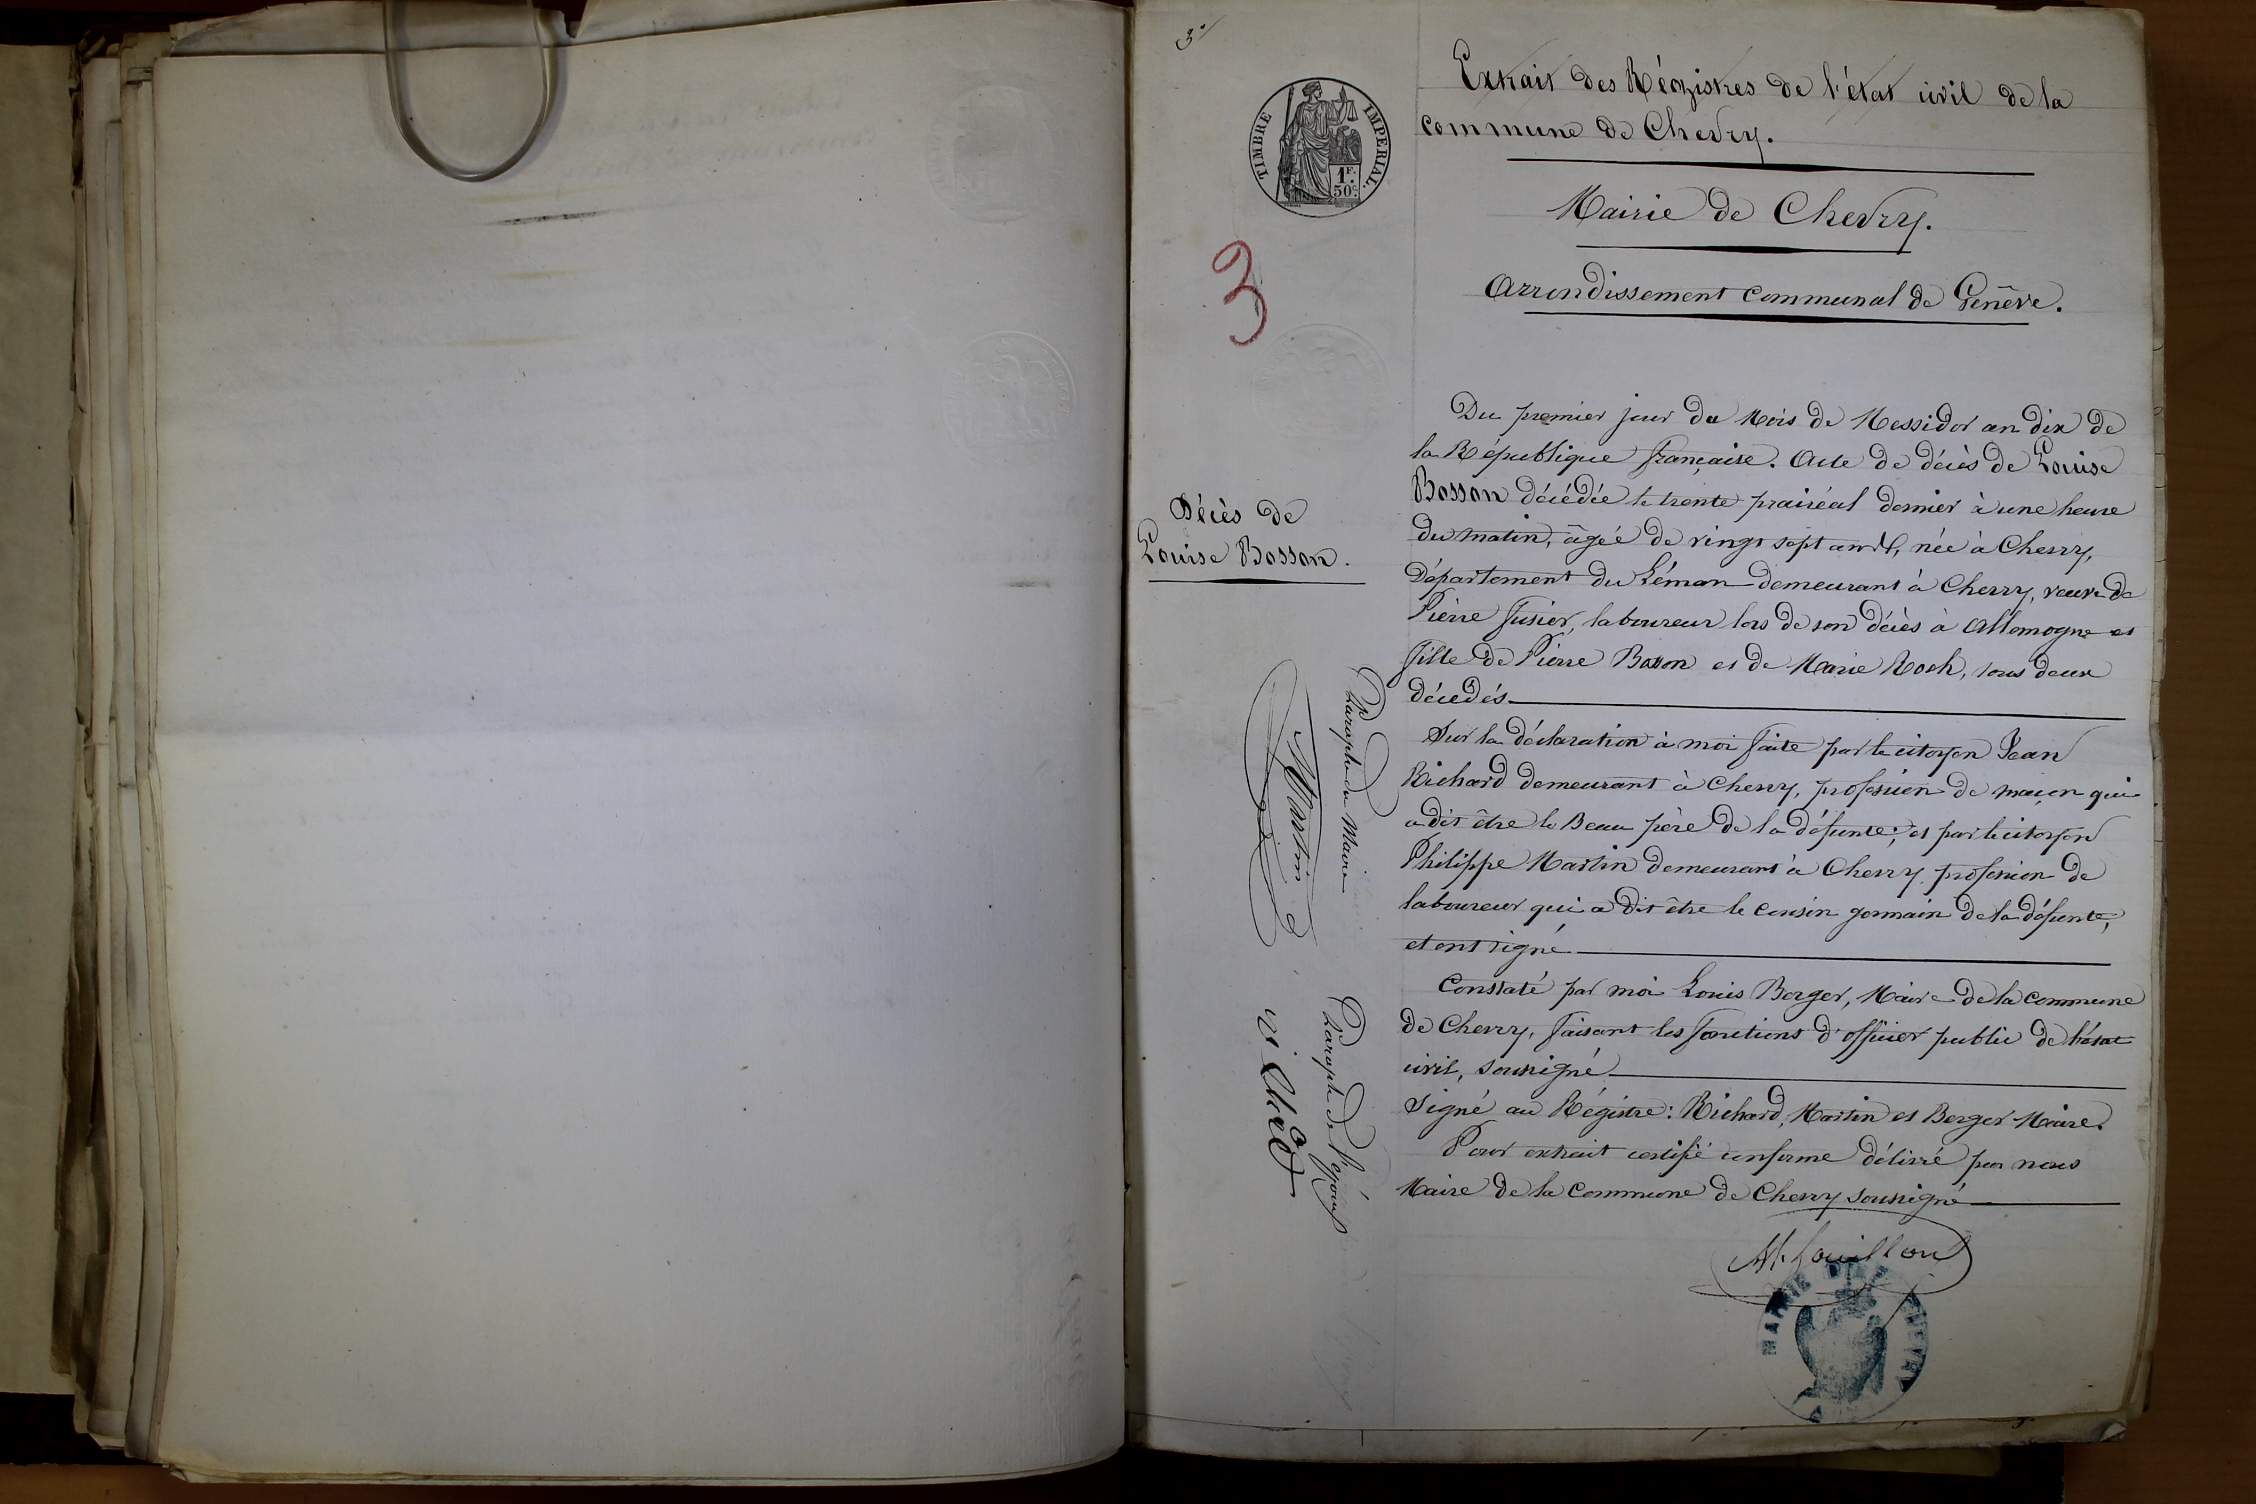 3°
TIMBRE IMPERIAL.
1F.
50c.
3
Extrait des Régistres de l'état civil de la
commune de Chevry.
Mairie de Chevry.
Arrondissement communal de Genève.
Décès de
Louise Bosson.
Du premier jour du Mois de Messidor an dix de
la République française. Acte de décès de Louise
Bosson décédée le trente prairéal dernier à une heure
du matin, âgée de vingt sept ans, née à Chevry,
Département du Léman demeurant à Chevry, veuve de
Pierre Fusier, laboureur lors de son décès à Allemogne et
fille de Pierre Bosson et de Marie Roch, tous deux
décédés
Sur la déclaration à moi faite par le citoyen Jean
Richard demeurant à Chevry, profession de maçon qui
a dit être le Beau père de la défunte; et par le citoyen
Philippe Martin demeurant à Chevry profession de
laboureur qui a dit être le cousin germain de la défunte,
et ont signé
Constaté par moi Louis Berger, Maire de la commune
de Chevry, faisant les fonctions d'officier public de l'état
civil, soussigné
Signé au Régistre: Richard, Martin et Berger Maire.
Pour extrait certifié conforme délivré par nous
Maire de la Commune de Chevry soussigné
Paraphe du Maire
Martin
Paraphe de l'époux
MAIRIE DE CHEVRY